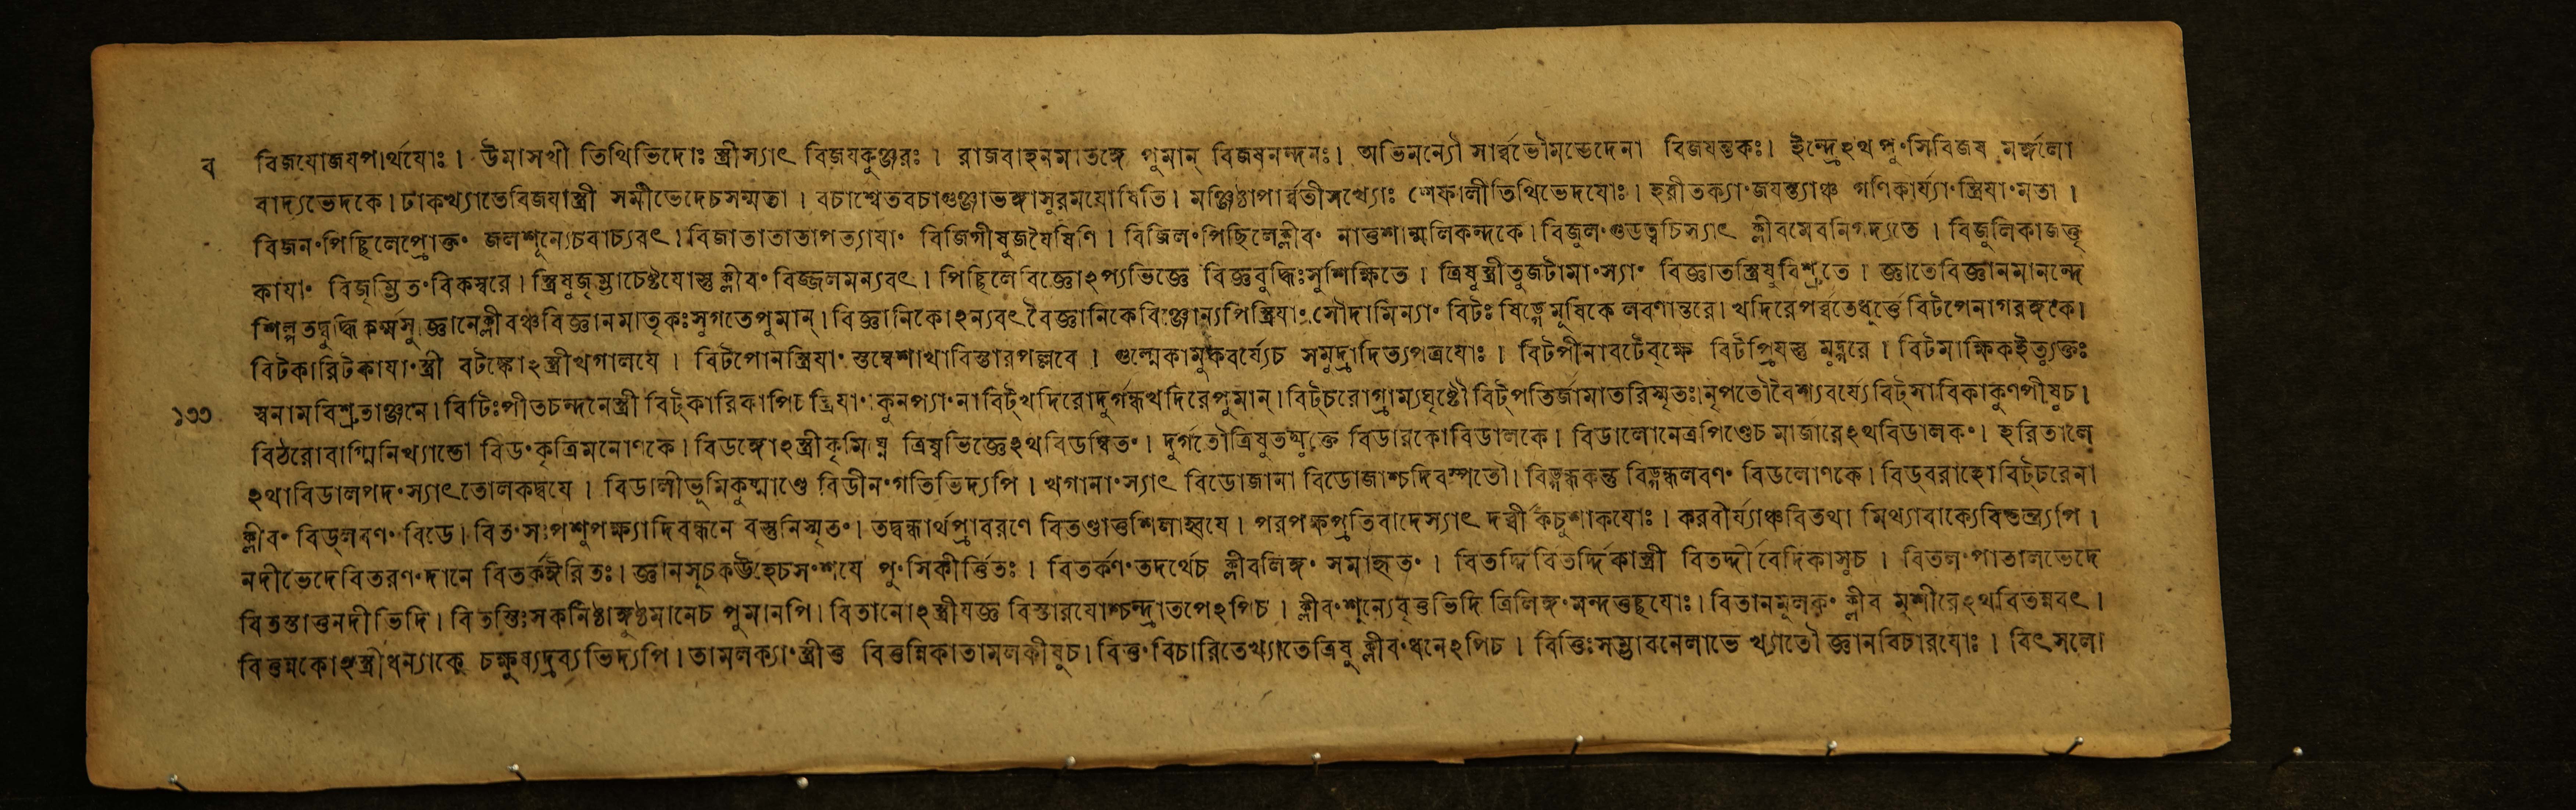 ব বিজযোজযপার্থযোঃ । উমাসখী তিথিভিদোঃ স্ত্রীস্যাৎ বিজযকুঞ্জরঃ । রাজবাহনমাতঙ্গে পুমান্ বিজযনন্দনঃ। অভিমন্যৌ সার্ব্বভৌমভেদেনা বিজযন্তকঃ। ইন্দ্রেঽথ পুংসিবিজয মর্ঙ্গলো
বাদ্যভেদকে। টাকখ্যাতেবিজযাস্ত্রী সমীভেদেচসম্মতা । বচাশ্বেতবচাগুঞ্জাভঙ্গাসুরমযোষিতি। মঞ্জিষ্ঠাপার্ব্বতীসখ্যোঃ শেফালীতিথিভেদযোঃ। হরীতক্যাংজযন্ত্যাঞ্চ গণিকার্য্যাংস্ত্রিযাংমতা ।
বিজনংপিছিলেপ্রোক্তং জলশূন্যেচবাচ্যবৎ। বিজাতাতাতাপত্যাযাং বিজিগীষুজযৈষিণি । বিজিলংপিছিলেক্লীবং নাত্তুশাল্মলিকন্দকে। বিজুলংগুডত্বচিস্যাৎ ক্লীবমেবনিগদ্যতে । বিজুলিকাজন্তূ
কাযাং বিজৃম্ভিতংবিকস্বরে। স্ত্রিষুজৃম্ভাচেষ্টযোস্তুক্লীবংবিজ্জলমন্যবৎ । পিছিলেবিজ্ঞোঽপ্যভিজ্ঞে বিজ্ঞবুদ্ধিঃসুশিক্ষিতে । ত্রিষুস্ত্রীতুজটামাংস্যাং বিজ্ঞাতস্ত্রিষুবিশ্রুতে । জ্ঞাতেবিজ্ঞানমানন্দে
শিল্পতদ্বুদ্ধিকর্ম্মসু জ্ঞানেক্লীবঞ্চবিজ্ঞানমাতৃকঃসুগতেপুমান্। বিজ্ঞানিকোঽন্যবৎ বৈজ্ঞানিকেবিঞ্জোন্যপিস্ত্রিযাং সৌদামিন্যাং বিটঃ ষিড়্গেমূষিকে লবণান্তরে। খদিরেপর্ব্বতেধূর্ত্তে বিটপেনাগরঙ্গকে।
বিটকারিটকাযাংস্ত্রী বটঙ্কোঽস্ত্রীথগালযে । বিটপোনস্ত্রিযাং স্তম্বেশাখাবিস্তারপল্লবে । গুল্মেকামুকবর্য্যেচ সমুদ্রাদিত্যপত্রযোঃ । বিটপীনাবটেবৃক্ষে বিটপ্রিযস্তু মুদ্গরে । বিটমাক্ষিকইত্যুক্তঃ
১৩৩ স্বনামবিশ্রুতাঞ্জনে। বিটিঃপীতচন্দনেস্ত্রী বিট্‌কারিকাপিচস্ত্রিযাং কুনপ্যাংনাবিট্‌খদিরোদুর্গন্ধখদিরেপুমান্। বিট্‌চরোগ্রাম্যঘৃষ্টৌ বিট্‌পতির্জামাতরিস্মৃতঃ।নৃপতৌবৈশ্যবর্য্যেবিট্‌সাবিকাকুণপীষুচ।
বিঠরোবাগ্মিনিখ্যাতো বিডংকৃত্রিমনোণকে। বিডঙ্গোঽস্ত্রীকৃমিঘ্ন ত্রিষ্বভিজ্ঞেঽথবিডম্বিতং। দুর্গতৌত্রিষুতম্মুক্তে বিডারকোবিডালকে। বিডালোনেত্রপিণ্ডেচ মার্জারেঽথবিডালকং। হরিতালে
ঽথাবিডালপদংস্যাৎতোলকদ্বযে । বিডালীভূমিকুষ্মাণ্ডে বিডীনংগতিভিদ্যপি । খগানাংস্যাৎ বিডোজানা বিডোজাশ্চদিবস্পতৌ। বিড়্গন্ধকন্তু বিড়্গন্ধলবণং বিডলোণকে। বিড্‌বরাহোবিট্‌চরেনা
ক্লীবং বিড্‌লবণং বিডে। বিতংসঃপশুপক্ষ্যাদিবন্ধনে বস্তুনিস্মৃতং। তদ্বন্ধার্থপ্রাবরণে বিতণ্ডাত্তুশিলাহ্বযে । পরপক্ষপ্রতিবাদেস্যাৎ দর্ব্বী কচুশাকযোঃ। করবীর্য্যাঞ্চবিতথা মিথ্যাবাক্যেবিতন্ত্র্যপি ।
নদীভেদেবিতরণংদানে বিতর্কঈরিতঃ। জ্ঞানসূচকঊহেচসংশযে পুংসিকীর্ত্তিতঃ । বিতর্কণংতদর্থেচ ক্লীবলিঙ্গং সমাহৃতং । বিতর্দ্দিবিতর্দ্দিকাস্ত্রী বিতর্দ্দীবেদিকাসুচ । বিতলংপাতালভেদে
বিতস্তাত্তুনদীভিদি। বিতস্তিঃসকনিষ্ঠাঙ্গুষ্ঠমানেচ পুমানপি। বিতানোঽস্ত্রীযজ্ঞ বিস্তারযোশ্চন্দ্রাতপেঽপিচ । ক্লীবংশূন্যেবৃত্তভিদি ত্রিলিঙ্গংমন্দতুচ্ছযোঃ। বিতানমূলকং ক্লীব মুশীরেঽথবিতুন্নবৎ ।
বিতুন্নকোঽস্ত্রীধন্যাকে চক্ষুষ্যদ্রব্যভিদ্যপি। তামলক্যাংস্ত্রীত্তু বিতুন্নিকাতামলকীষুচ। বিত্তংবিচারিতেখ্যাতেত্রিষু ক্লীবংধনেঽপিচ । বিত্তিঃসম্ভাবনেলাভে খ্যাতৌ জ্ঞানবিচারযোঃ । বিৎসলো